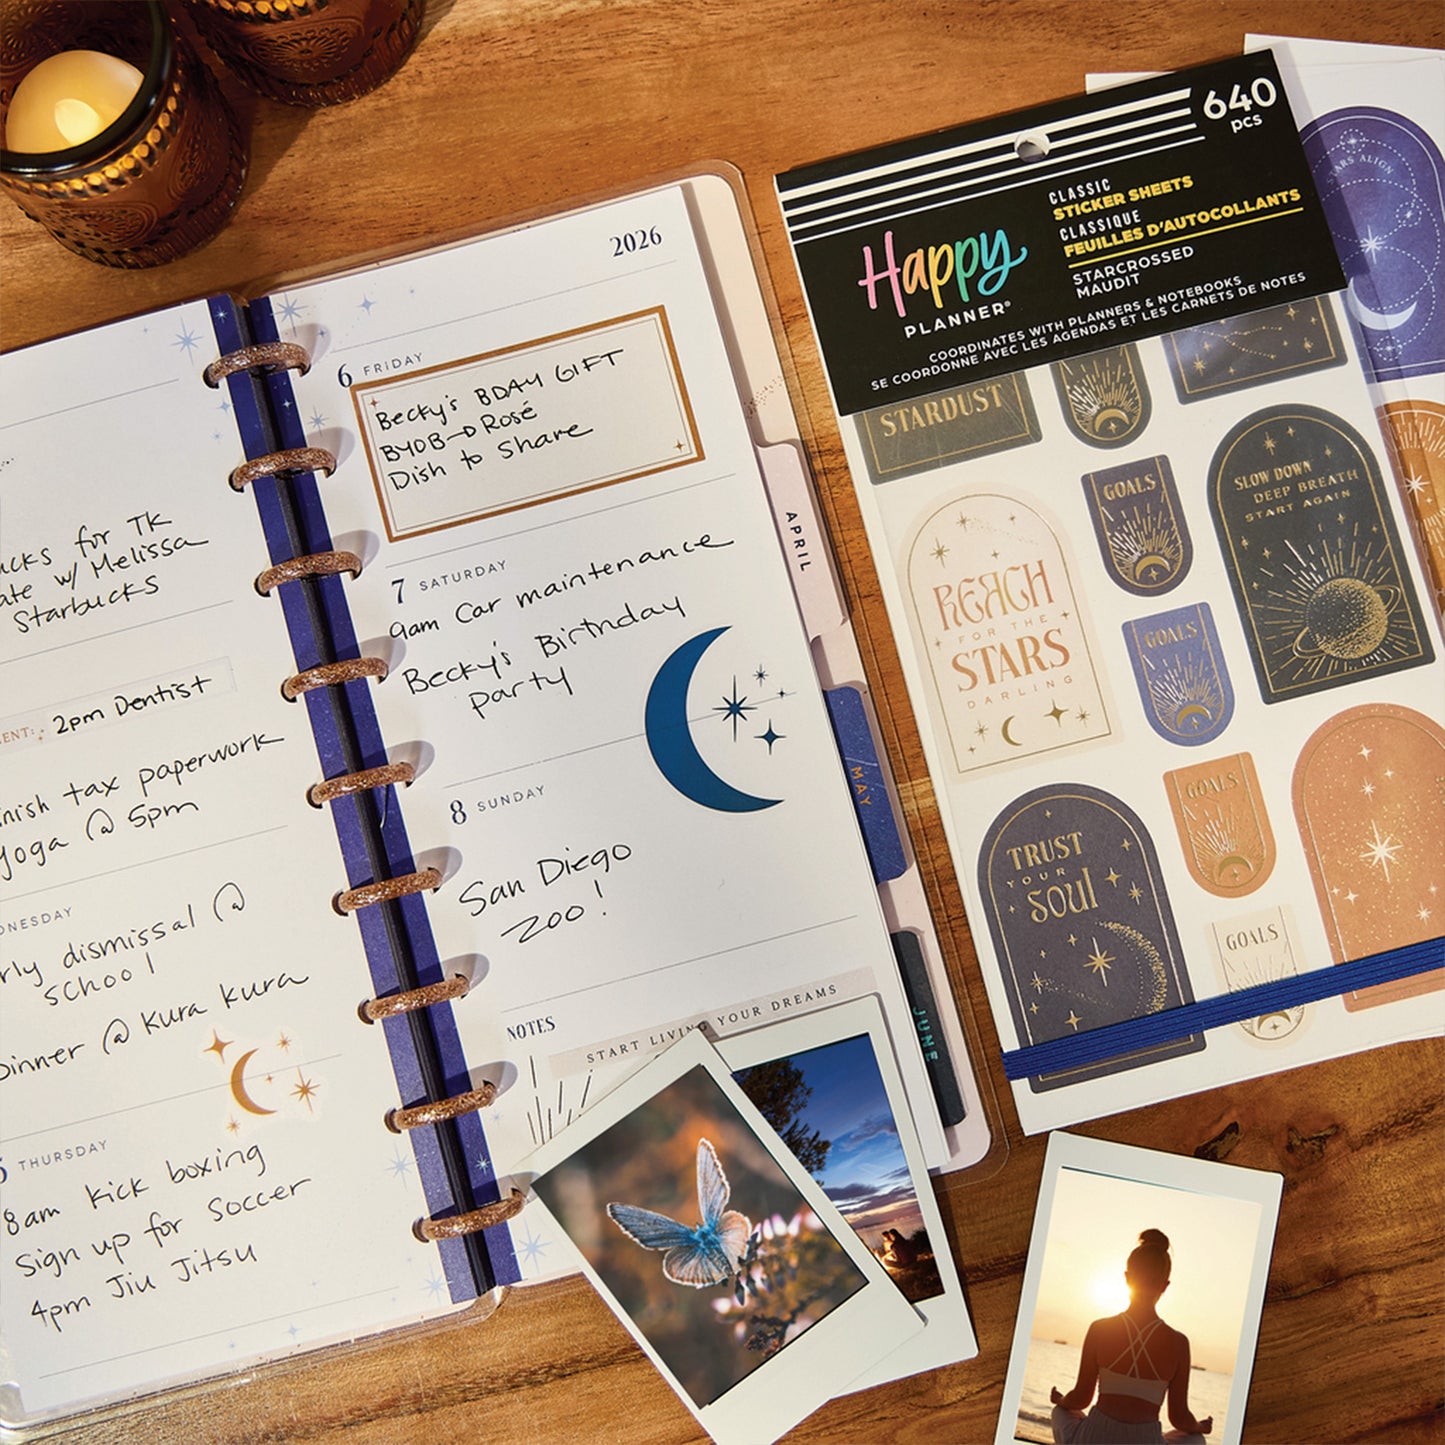 for TK
w/ Melissa
Starbucks
2pm Dentist
tax paperwork
yoga @ 5pm
dismissal @
school
Dinner @ Kura Kura
THURSDAY
8am Kick boxing
Sign up for Soccer
4pm Jiu Jitsu
2026
6 FRIDAY
Becky's BDAY GIFT
BYOB→Rosé
Dish to Share
7 SATURDAY
9am Car maintenance
Becky's Birthday
party
8 SUNDAY
San Diego
Zoo!
NOTES
START LIVING YOUR DREAMS
APRIL
MAY
JUNE
640
pcs
CLASSIC
STICKER SHEETS
CLASSIQUE
FEUILLES D'AUTOCOLLANTS
STARCROSSED
MAUDIT
Happy
PLANNER®
COORDINATES WITH PLANNERS & NOTEBOOKS
SE COORDONNE AVEC LES AGENDAS ET LES CARNETS DE NOTES
STARDUST
REACH
FOR THE
STARS
DARLING
GOALS
GOALS
GOALS
GOALS
SLOW DOWN
DEEP BREATH
START AGAIN
TRUST
YOUR
SOUL
ALIGN